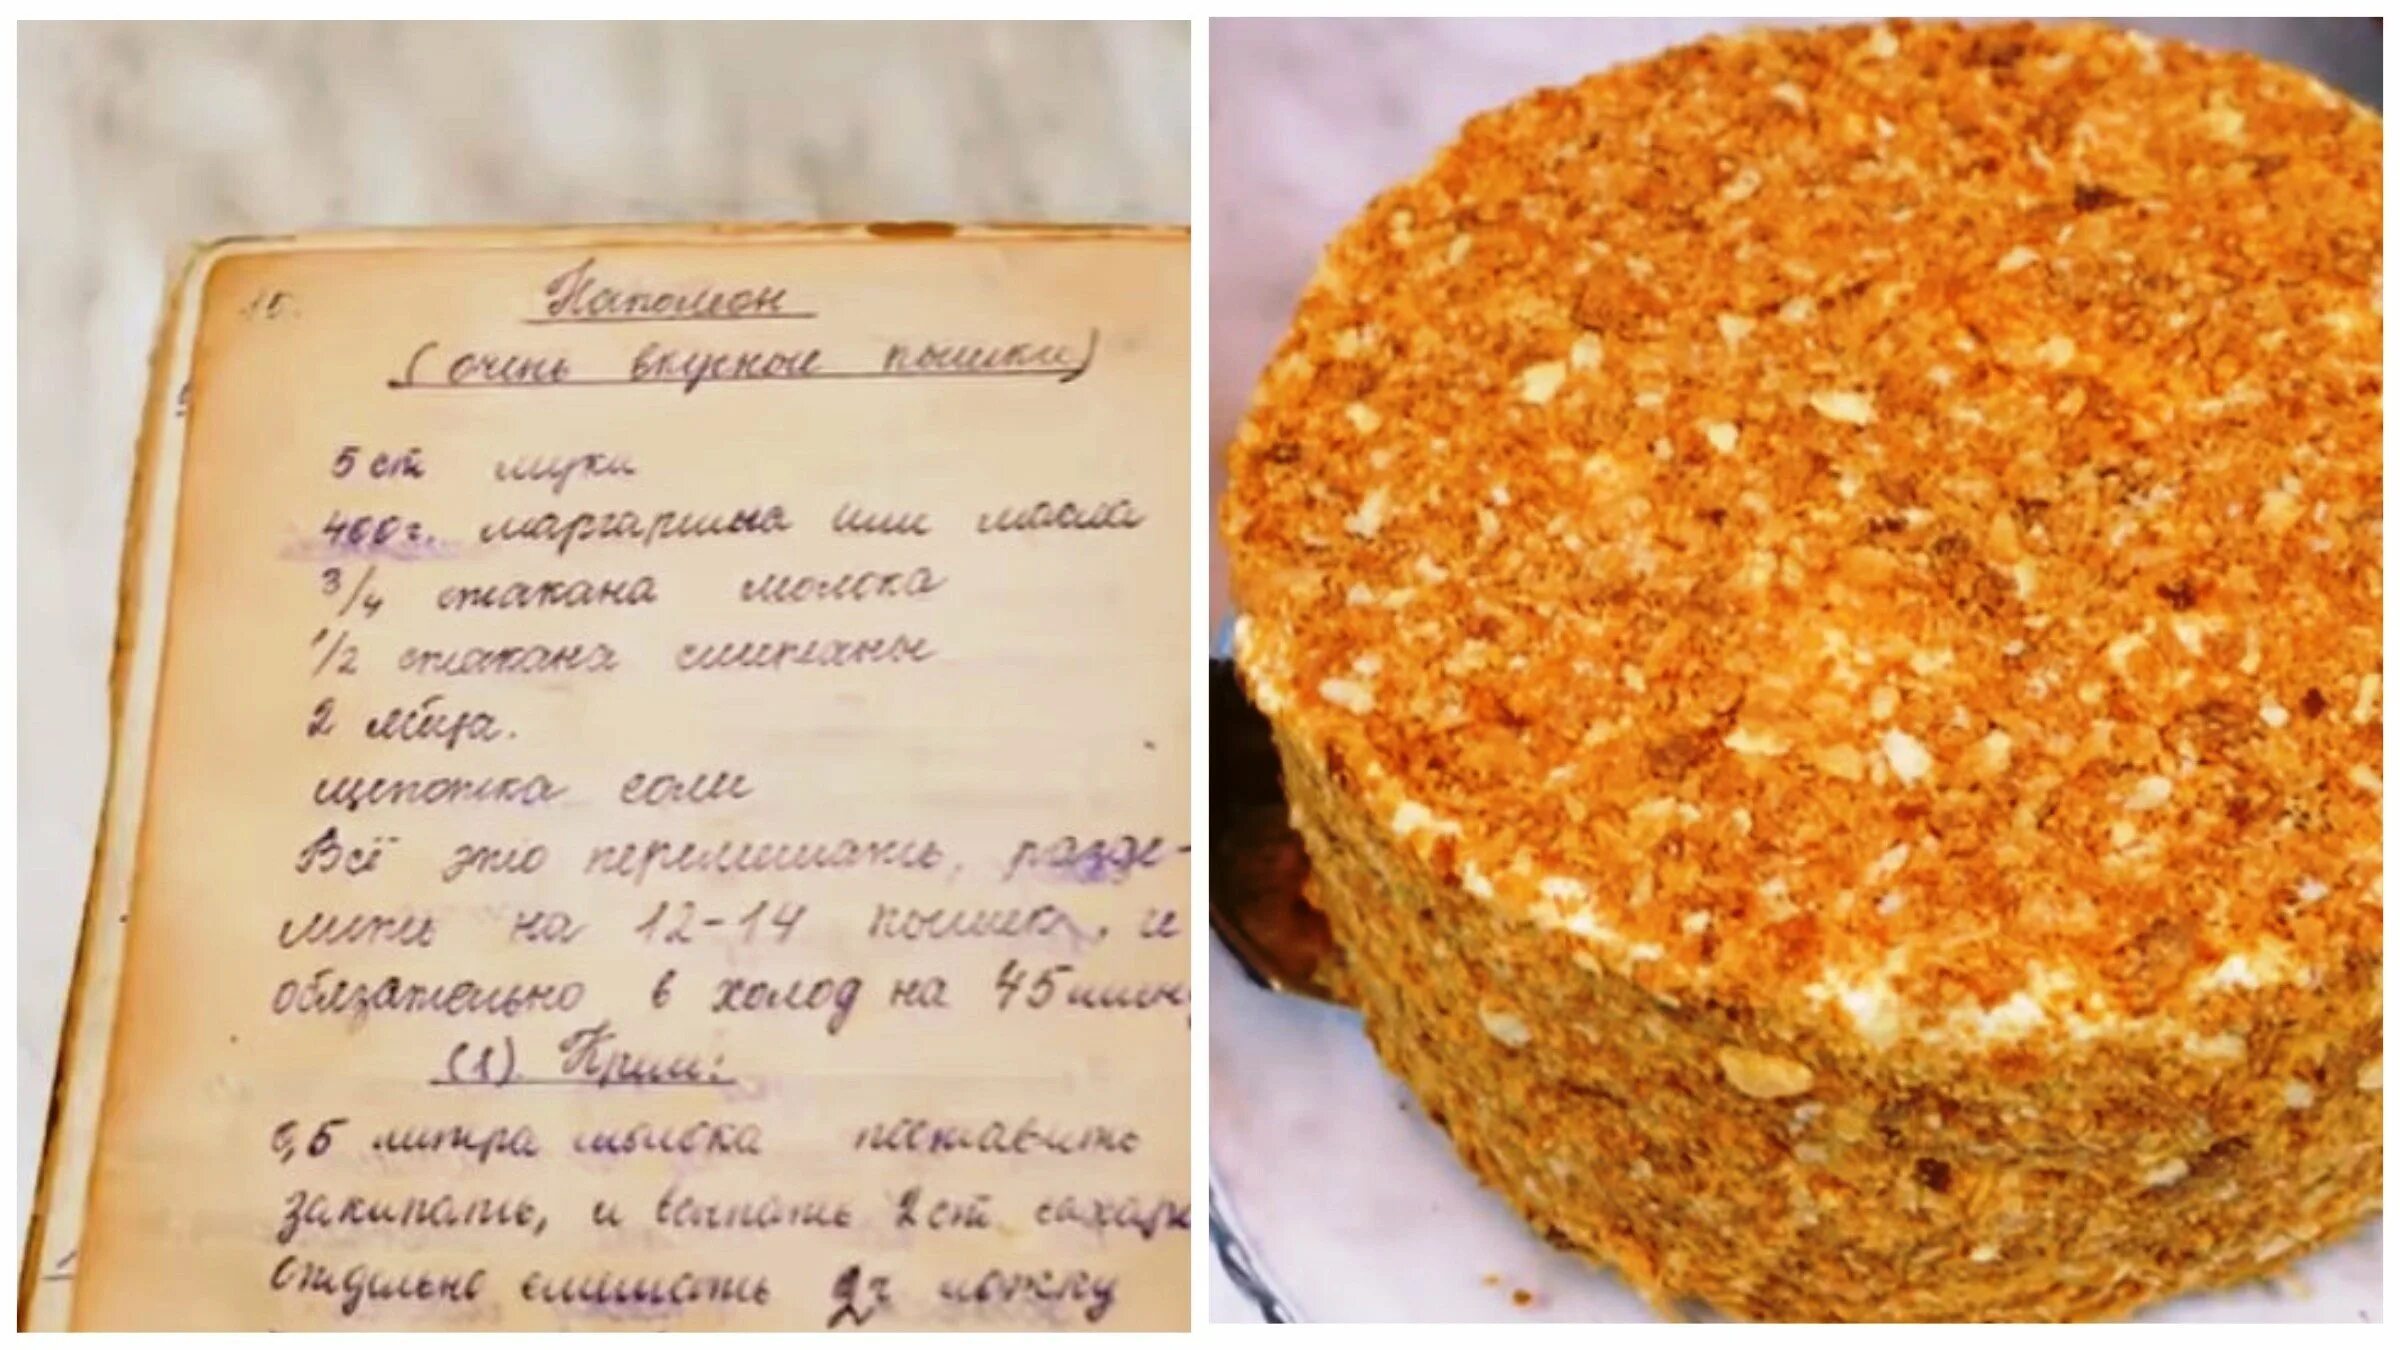 15.
Наполеон
(очень вкусные пышки)
5 ст муки
400 г. маргарина или масла
3/4 стакана молока
1/2 стакана сметаны
2 яйца.
щепотка соли
Всё это перемешать, разде-
лить на 12-14 пышек, и
обязательно в холод на 45 мину
(1). Крем:
0,5 литра молока поставить
закипать, и всыпать 2 ст. сахара
отдельно смешать 2 ч ложку